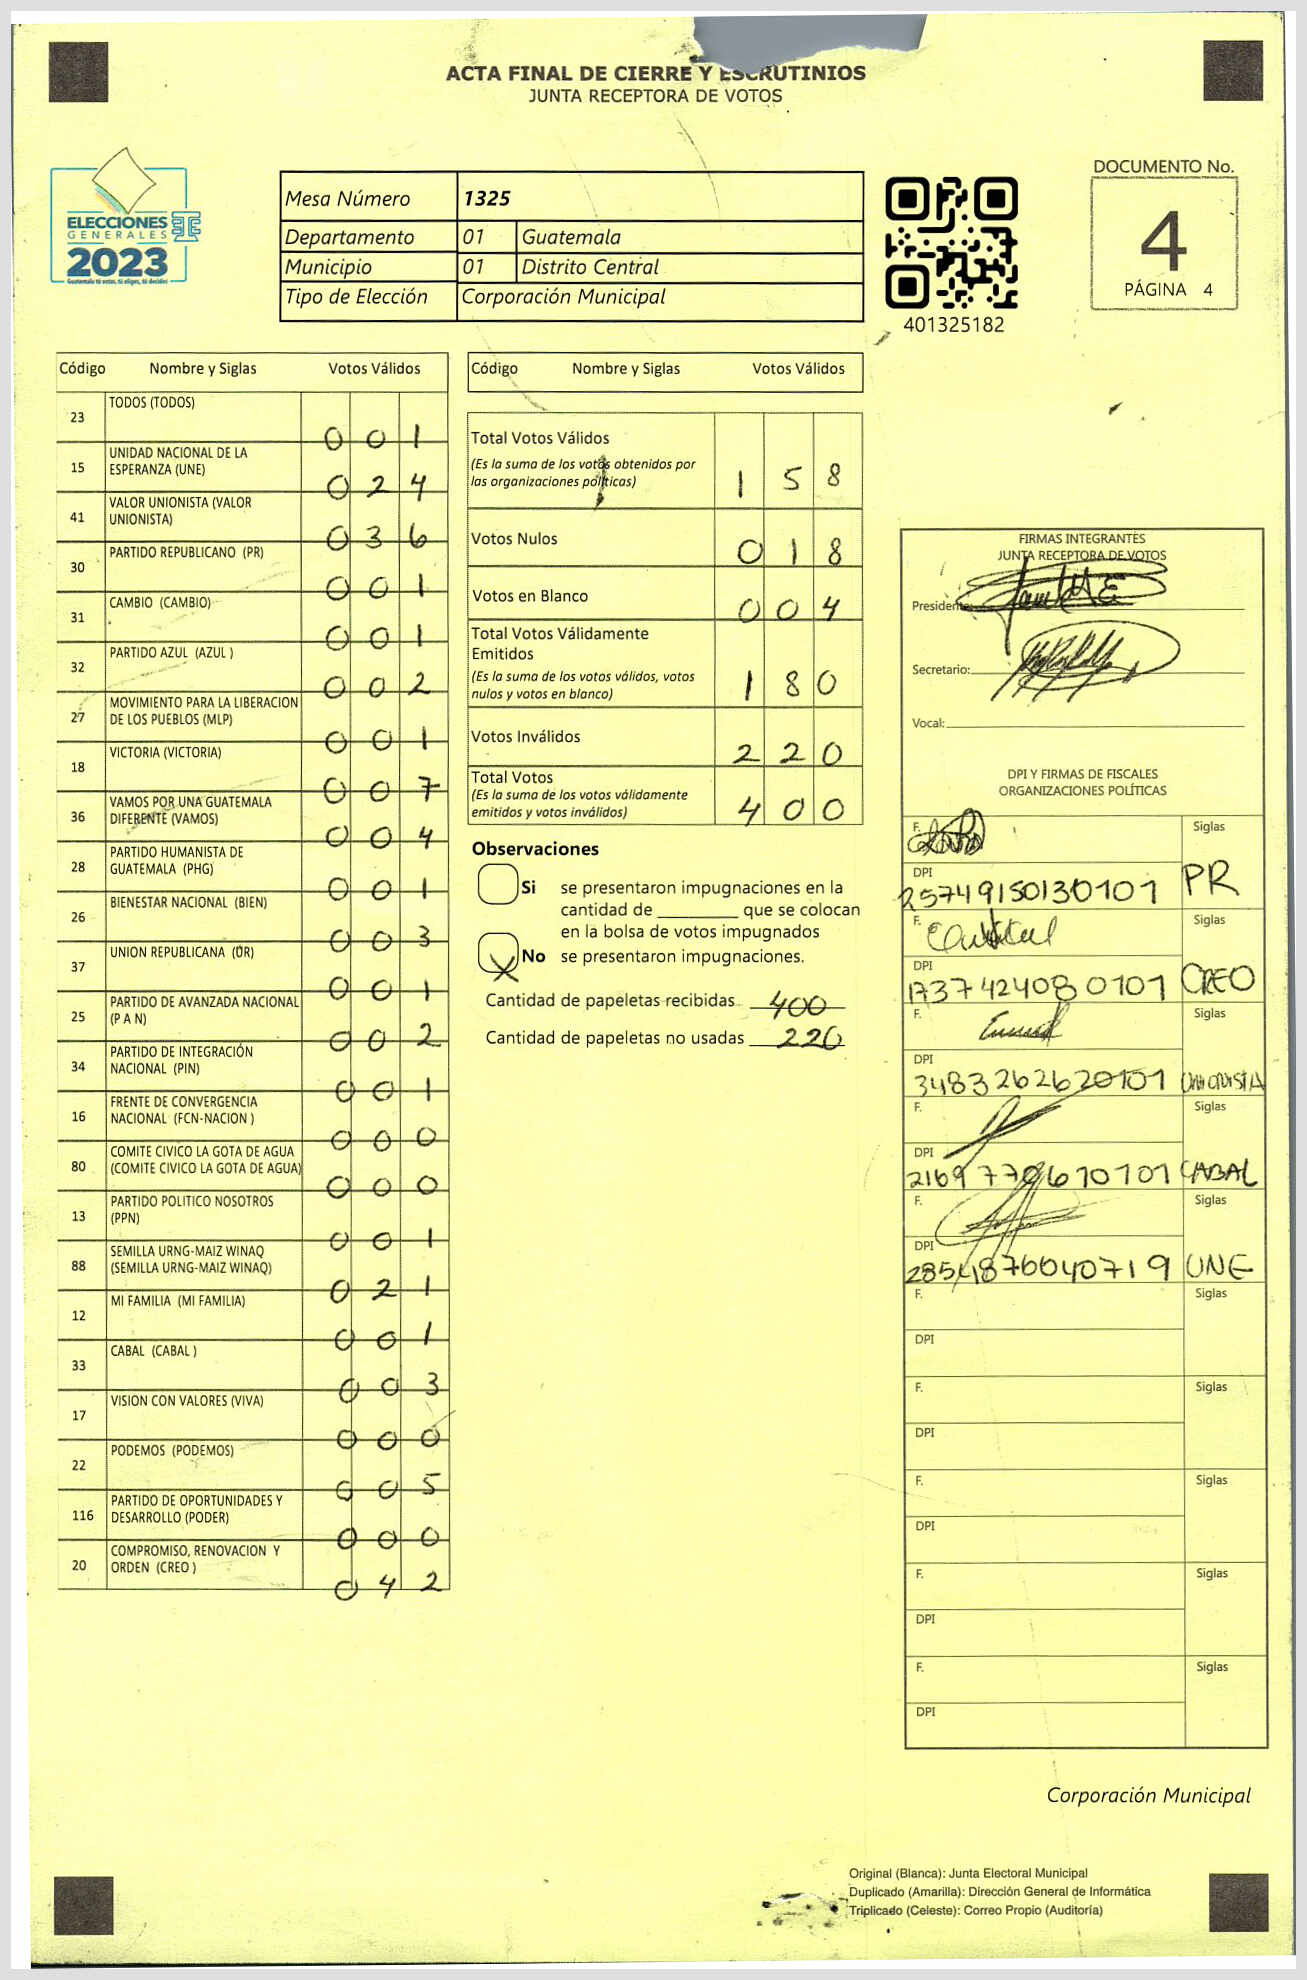 ACTA FINAL DE CIERRE Y ESCRUTINIOS
JUNTA RECEPTORA DE VOTOS
ELECCIONES
GENERALES
2023
Guatemala tú votas, tú eliges, tú decides
Mesa Número 1325
Departamento 01 Guatemala
Municipio 01 Distrito Central
Tipo de Elección Corporación Municipal
401325182
DOCUMENTO No.
4
PÁGINA 4
Código Nombre y Siglas Votos Válidos
23 TODOS (TODOS) 0 0 1
15 UNIDAD NACIONAL DE LA
ESPERANZA (UNE) 0 2 4
41 VALOR UNIONISTA (VALOR
UNIONISTA) 0 3 6
30 PARTIDO REPUBLICANO (PR) 0 0 1
31 CAMBIO (CAMBIO) 0 0 1
32 PARTIDO AZUL (AZUL ) 0 0 2
27 MOVIMIENTO PARA LA LIBERACION
DE LOS PUEBLOS (MLP) 0 0 1
18 VICTORIA (VICTORIA) 0 0 7
36 VAMOS POR UNA GUATEMALA
DIFERENTE (VAMOS) 0 0 4
28 PARTIDO HUMANISTA DE
GUATEMALA (PHG) 0 0 1
26 BIENESTAR NACIONAL (BIEN) 0 0 3
37 UNION REPUBLICANA (UR) 0 0 1
25 PARTIDO DE AVANZADA NACIONAL
(P A N) 0 0 2
34 PARTIDO DE INTEGRACIÓN
NACIONAL (PIN) 0 0 1
16 FRENTE DE CONVERGENCIA
NACIONAL (FCN-NACION ) 0 0 0
80 COMITE CIVICO LA GOTA DE AGUA
(COMITE CIVICO LA GOTA DE AGUA) 0 0 0
13 PARTIDO POLITICO NOSOTROS
(PPN) 0 0 1
88 SEMILLA URNG-MAIZ WINAQ
(SEMILLA URNG-MAIZ WINAQ) 0 2 1
12 MI FAMILIA (MI FAMILIA) 0 0 1
33 CABAL (CABAL ) 0 0 3
17 VISION CON VALORES (VIVA) 0 0 0
22 PODEMOS (PODEMOS) 0 0 5
116 PARTIDO DE OPORTUNIDADES Y
DESARROLLO (PODER) 0 0 0
20 COMPROMISO, RENOVACION Y
ORDEN (CREO ) 0 4 2
Código Nombre y Siglas Votos Válidos
Total Votos Válidos
(Es la suma de los votos obtenidos por
las organizaciones políticas) 1 5 8
Votos Nulos 0 1 8
Votos en Blanco 0 0 4
Total Votos Válidamente
Emitidos
(Es la suma de los votos válidos, votos
nulos y votos en blanco) 1 8 0
Votos Inválidos 2 2 0
Total Votos
(Es la suma de los votos válidamente
emitidos y votos inválidos) 4 0 0
Observaciones
Si se presentaron impugnaciones en la
cantidad de ________ que se colocan
en la bolsa de votos impugnados
X No se presentaron impugnaciones.
Cantidad de papeletas recibidas 400
Cantidad de papeletas no usadas 220
FIRMAS INTEGRANTES
JUNTA RECEPTORA DE VOTOS
Presidente:
Secretario:
Vocal:
DPI Y FIRMAS DE FISCALES
ORGANIZACIONES POLÍTICAS
F. Siglas
DPI 2574915013010​1 PR
F. Siglas
DPI 1737424080101 CREO
F. Siglas
DPI 3483262620101 UNIONISTA
F. Siglas
DPI 2169770610101 CABAL
F. Siglas
DPI 2854876040719 UNE
F. Siglas
DPI
F. Siglas
DPI
F. Siglas
DPI
F. Siglas
DPI
F. Siglas
DPI
Corporación Municipal
Original (Blanca): Junta Electoral Municipal
Duplicado (Amarilla): Dirección General de Informática
Triplicado (Celeste): Correo Propio (Auditoría)